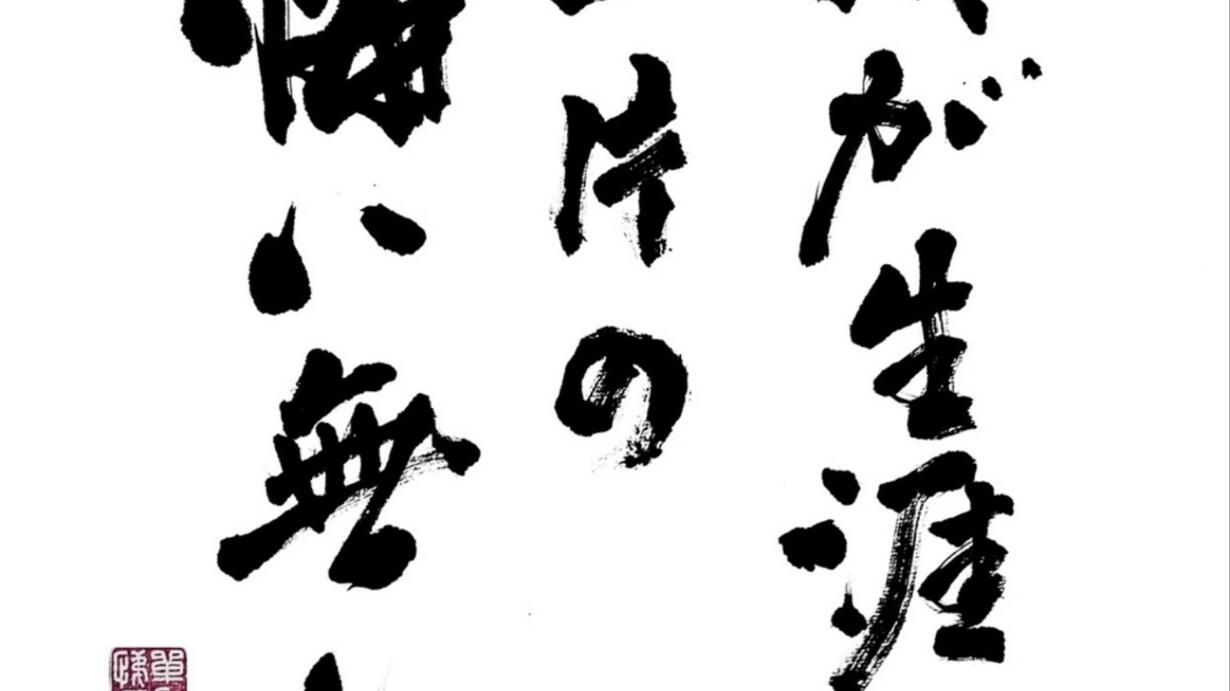 が生涯
片の
悔い無